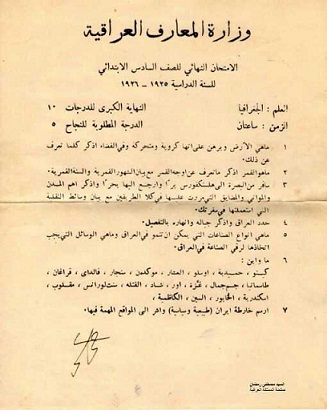 وزارة المعارف العراقية
الامتحان النهائي للصف السادس الابتدائي
للسنة الدراسية ١٩٣٥ – ١٩٣٦
العلم : الجغرافيا النهاية الكبرى للدرجات ١٠
الزمن : ساعتان الدرجة المطلوبة للنجاح ٥
١ ماهي الارض وبرهن على انها كروية ومتحركة وفي الفضاء اذكر كلما تعرف
عن ذلك.
٢ ماهو القمر اذكر ماتعرف عن اوجه القمر مع بيان الشهور القمرية والسنة القمرية.
٣ سافر من البصرة الى هلسنكفورس برا وارجع اليها بحرا واذكر اهم المدن
والموانئ والمضايق التي مررت عليها في كلا الطريقين مع بيان وسائط النقلية
التي استعملتها في سفرتك.
٤ حدد العراق واذكر جباله وانهاره بالتفصيل.
٥ ماهي انواع الصناعات التي يمكن ان تنمو في العراق وماهي الوسائل التي يجب
اتخاذها لرقي الصناعة في العراق.
٦ ما واين :
حميدية ، اوسلو ، العشار ، موكدن ، سنجار ،
طاسمانيا ، جمجمال ، غزة ، اور ، شاد ، سنت لورانس ،
اسكندرية ، الخابور ، البين ، الكاظمية ،
٧ ارسم خارطة ايران (طبيعية وسياسية) واشر الى المواقع المهمة فيها.